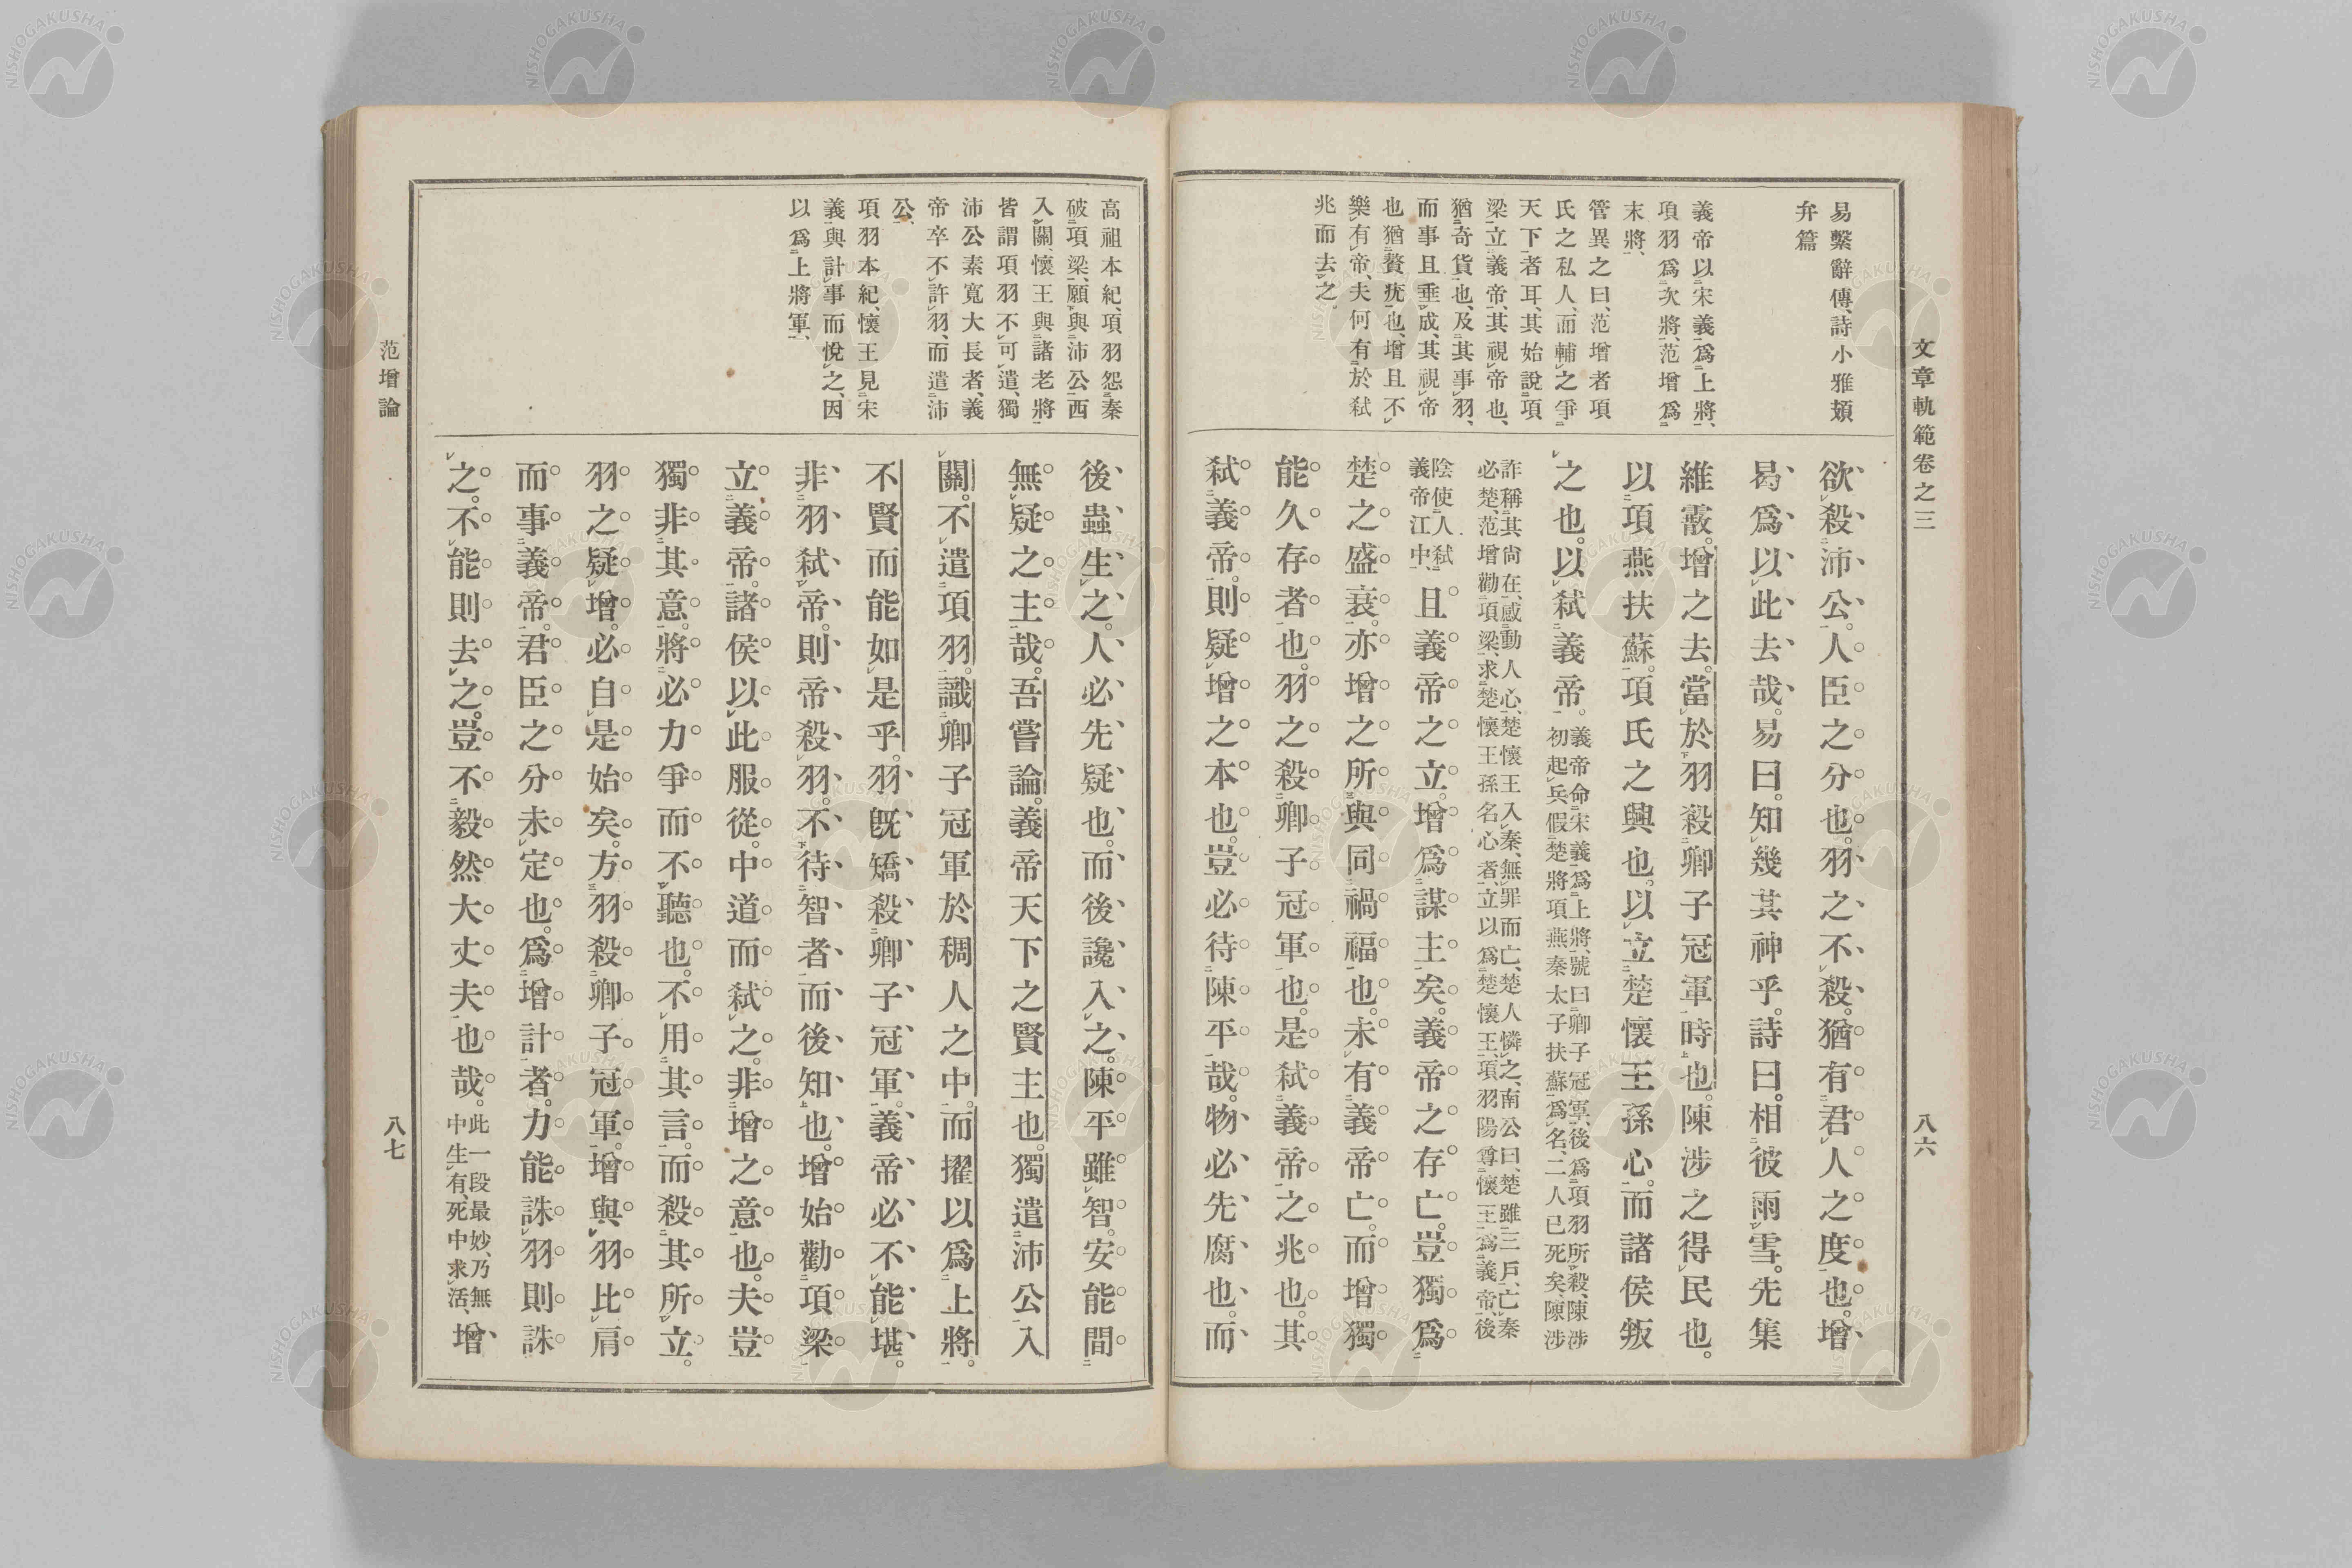 文章軌範卷之三
八六
易繫辭傳、詩小雅頍
弁篇
義帝以宋義爲上將、
項羽爲次將、范增爲
末將、
管異之曰、范增者項
氏之私人、而輔之爭
天下者耳、其始說項
梁立義帝、其視帝也、
猶奇貨也、及其事羽、
而事且垂成、其視帝
也猶贅疣也、增且不
樂有帝、夫何有於弑
兆而去之。
欲殺沛公。人臣之分也。羽之不殺。猶有君人之度也。增
曷爲以此去哉。易曰。知幾其神乎。詩曰。相彼雨雪。先集
維霰。增之去。當於羽殺卿子冠軍時也。陳涉之得民也。
以項燕扶蘇。項氏之興也。以立楚懷王孫心。而諸侯叛
之也。以弑義帝。義帝命宋義爲上將、號曰卿子冠軍、後爲項羽所殺、陳涉
初起兵假楚將項燕秦太子扶蘇爲名、二人已死矣、陳涉
詐稱其尙在、感動人心、楚懷王入秦、無罪而亡、楚人憐之、南公曰、楚雖三戶、亡秦
必楚范增勸項梁、求楚懷王孫名心者、立以爲楚懷王、項羽陽尊懷王爲義帝、後
陰使人弑
義帝江中、且義帝之立。增爲謀主矣。義帝之存亡。豈獨爲
楚之盛衰。亦增之所與同禍福也。未有義帝亡。而增獨
能久存者也。羽之殺卿子冠軍也。是弑義帝之兆也。其
弑義帝。則疑增之本也。豈必待陳平哉。物必先腐也。而
高祖本紀、項羽怨秦
破項梁、願與沛公西
入關、懷王與諸老將
皆謂項羽不可遣、獨
沛公素寬大長者、義
帝卒不許羽、而遣沛
公、
項羽本紀、懷王見宋
義與計事而悅之、因
以爲上將軍、
後蟲生之。人必先疑也。而後讒入之。陳平雖智。安能間
無疑之主哉。吾嘗論。義帝天下之賢主也。獨遣沛公入
關。不遣項羽。識卿子冠軍於稠人之中。而擢以爲上將。
不賢而能如是乎。羽既矯殺卿子冠軍。義帝必不能堪。
非羽弑帝。則帝殺羽。不待智者而後知也。增始勸項梁
立義帝。諸侯以此服從。中道而弑之。非增之意也。夫豈
獨非其意。將必力爭而不聽也。不用其言。而殺其所立。
羽之疑增。必自是始矣。方羽殺卿子冠軍。增與羽比肩
而事義帝。君臣之分未定也。爲增計者。力能誅羽則誅
之。不能則去之。豈不毅然大丈夫也哉。此一段最妙、乃無
中生有、死中求活、增
范增論
八七